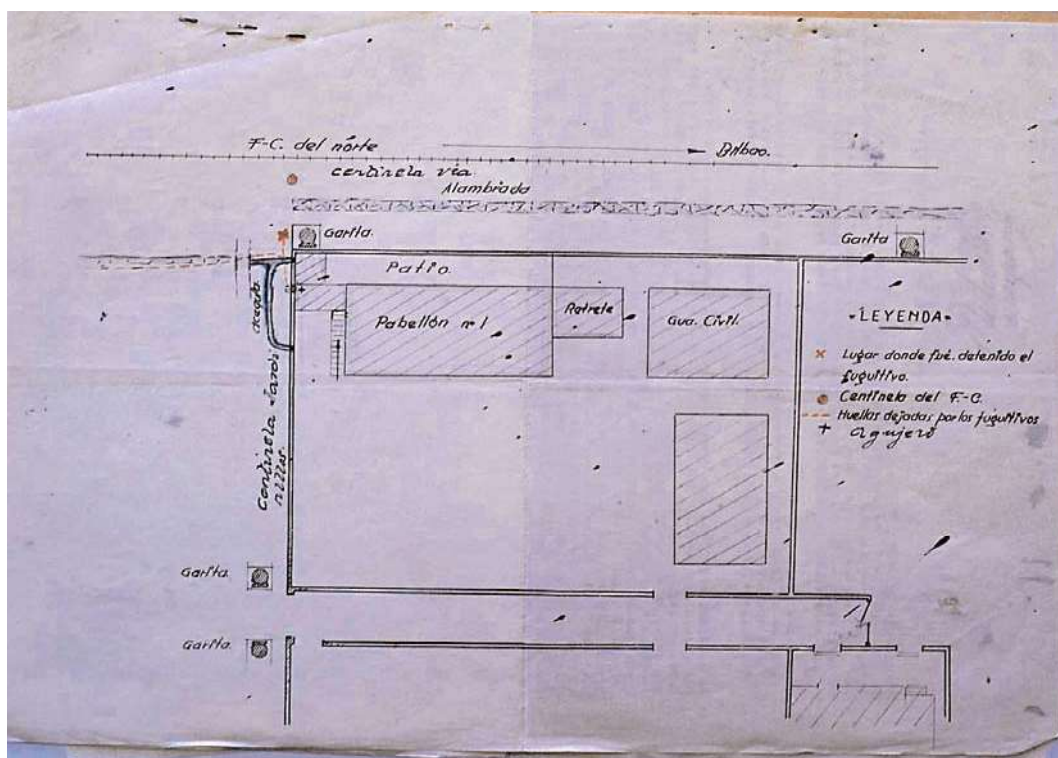 F-C. del norte
Bilbao.
centinela vía.
Alambrada
Garita.
Garita
Patio.
Pabellón nº 1
Retrete
Gua. Civil.
Centinela
Garita.
Garita.
-LEYENDA-
Lugar donde fué. detenido el
fuguitivo.
Centinela del F-C.
Huellas dejadas por los fuguitivos
agujero